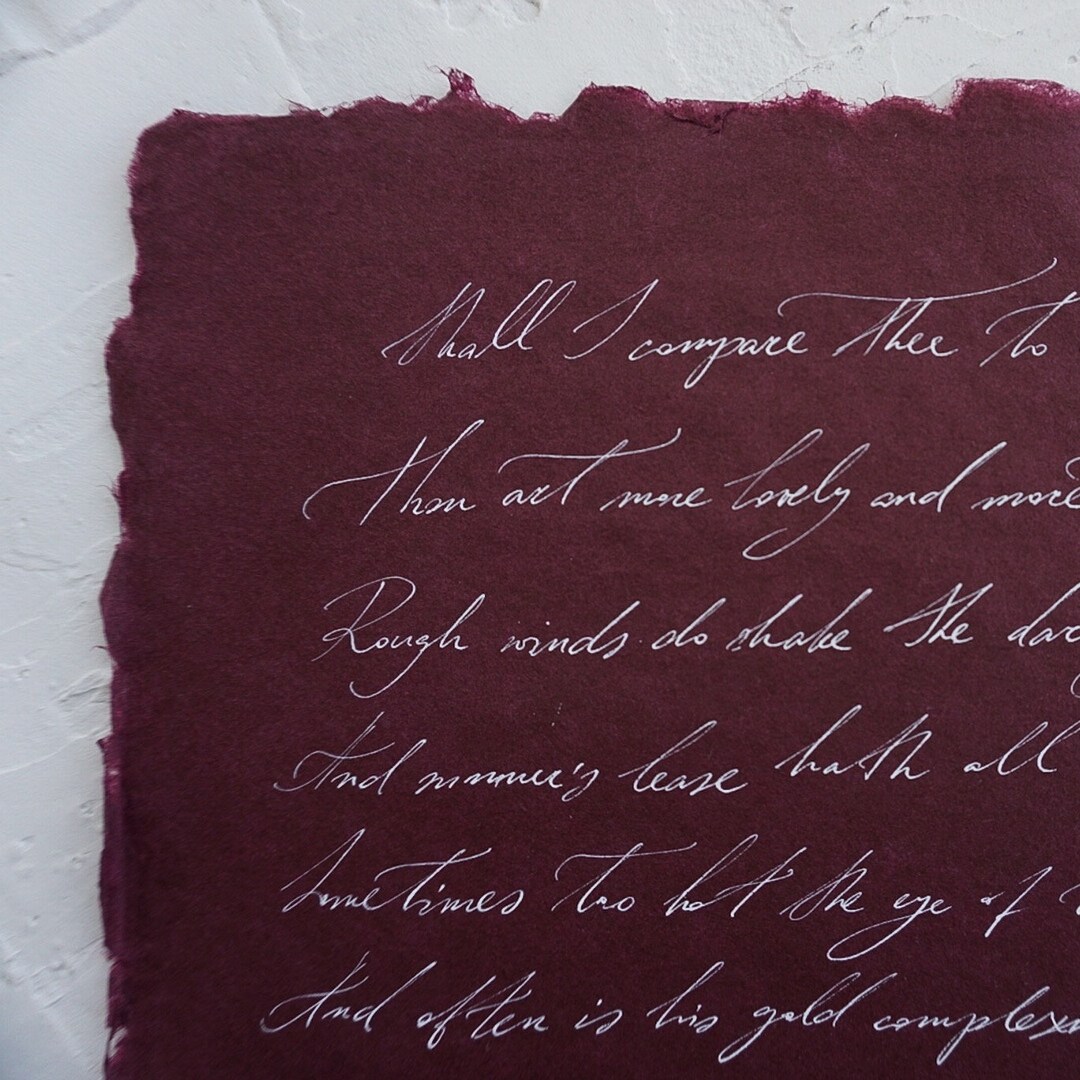 Shall I compare thee to
Thou art more lovely and more
Rough winds do shake the dar
And summer's lease hath all
Sometimes too hot the eye of
And often is his gold complex